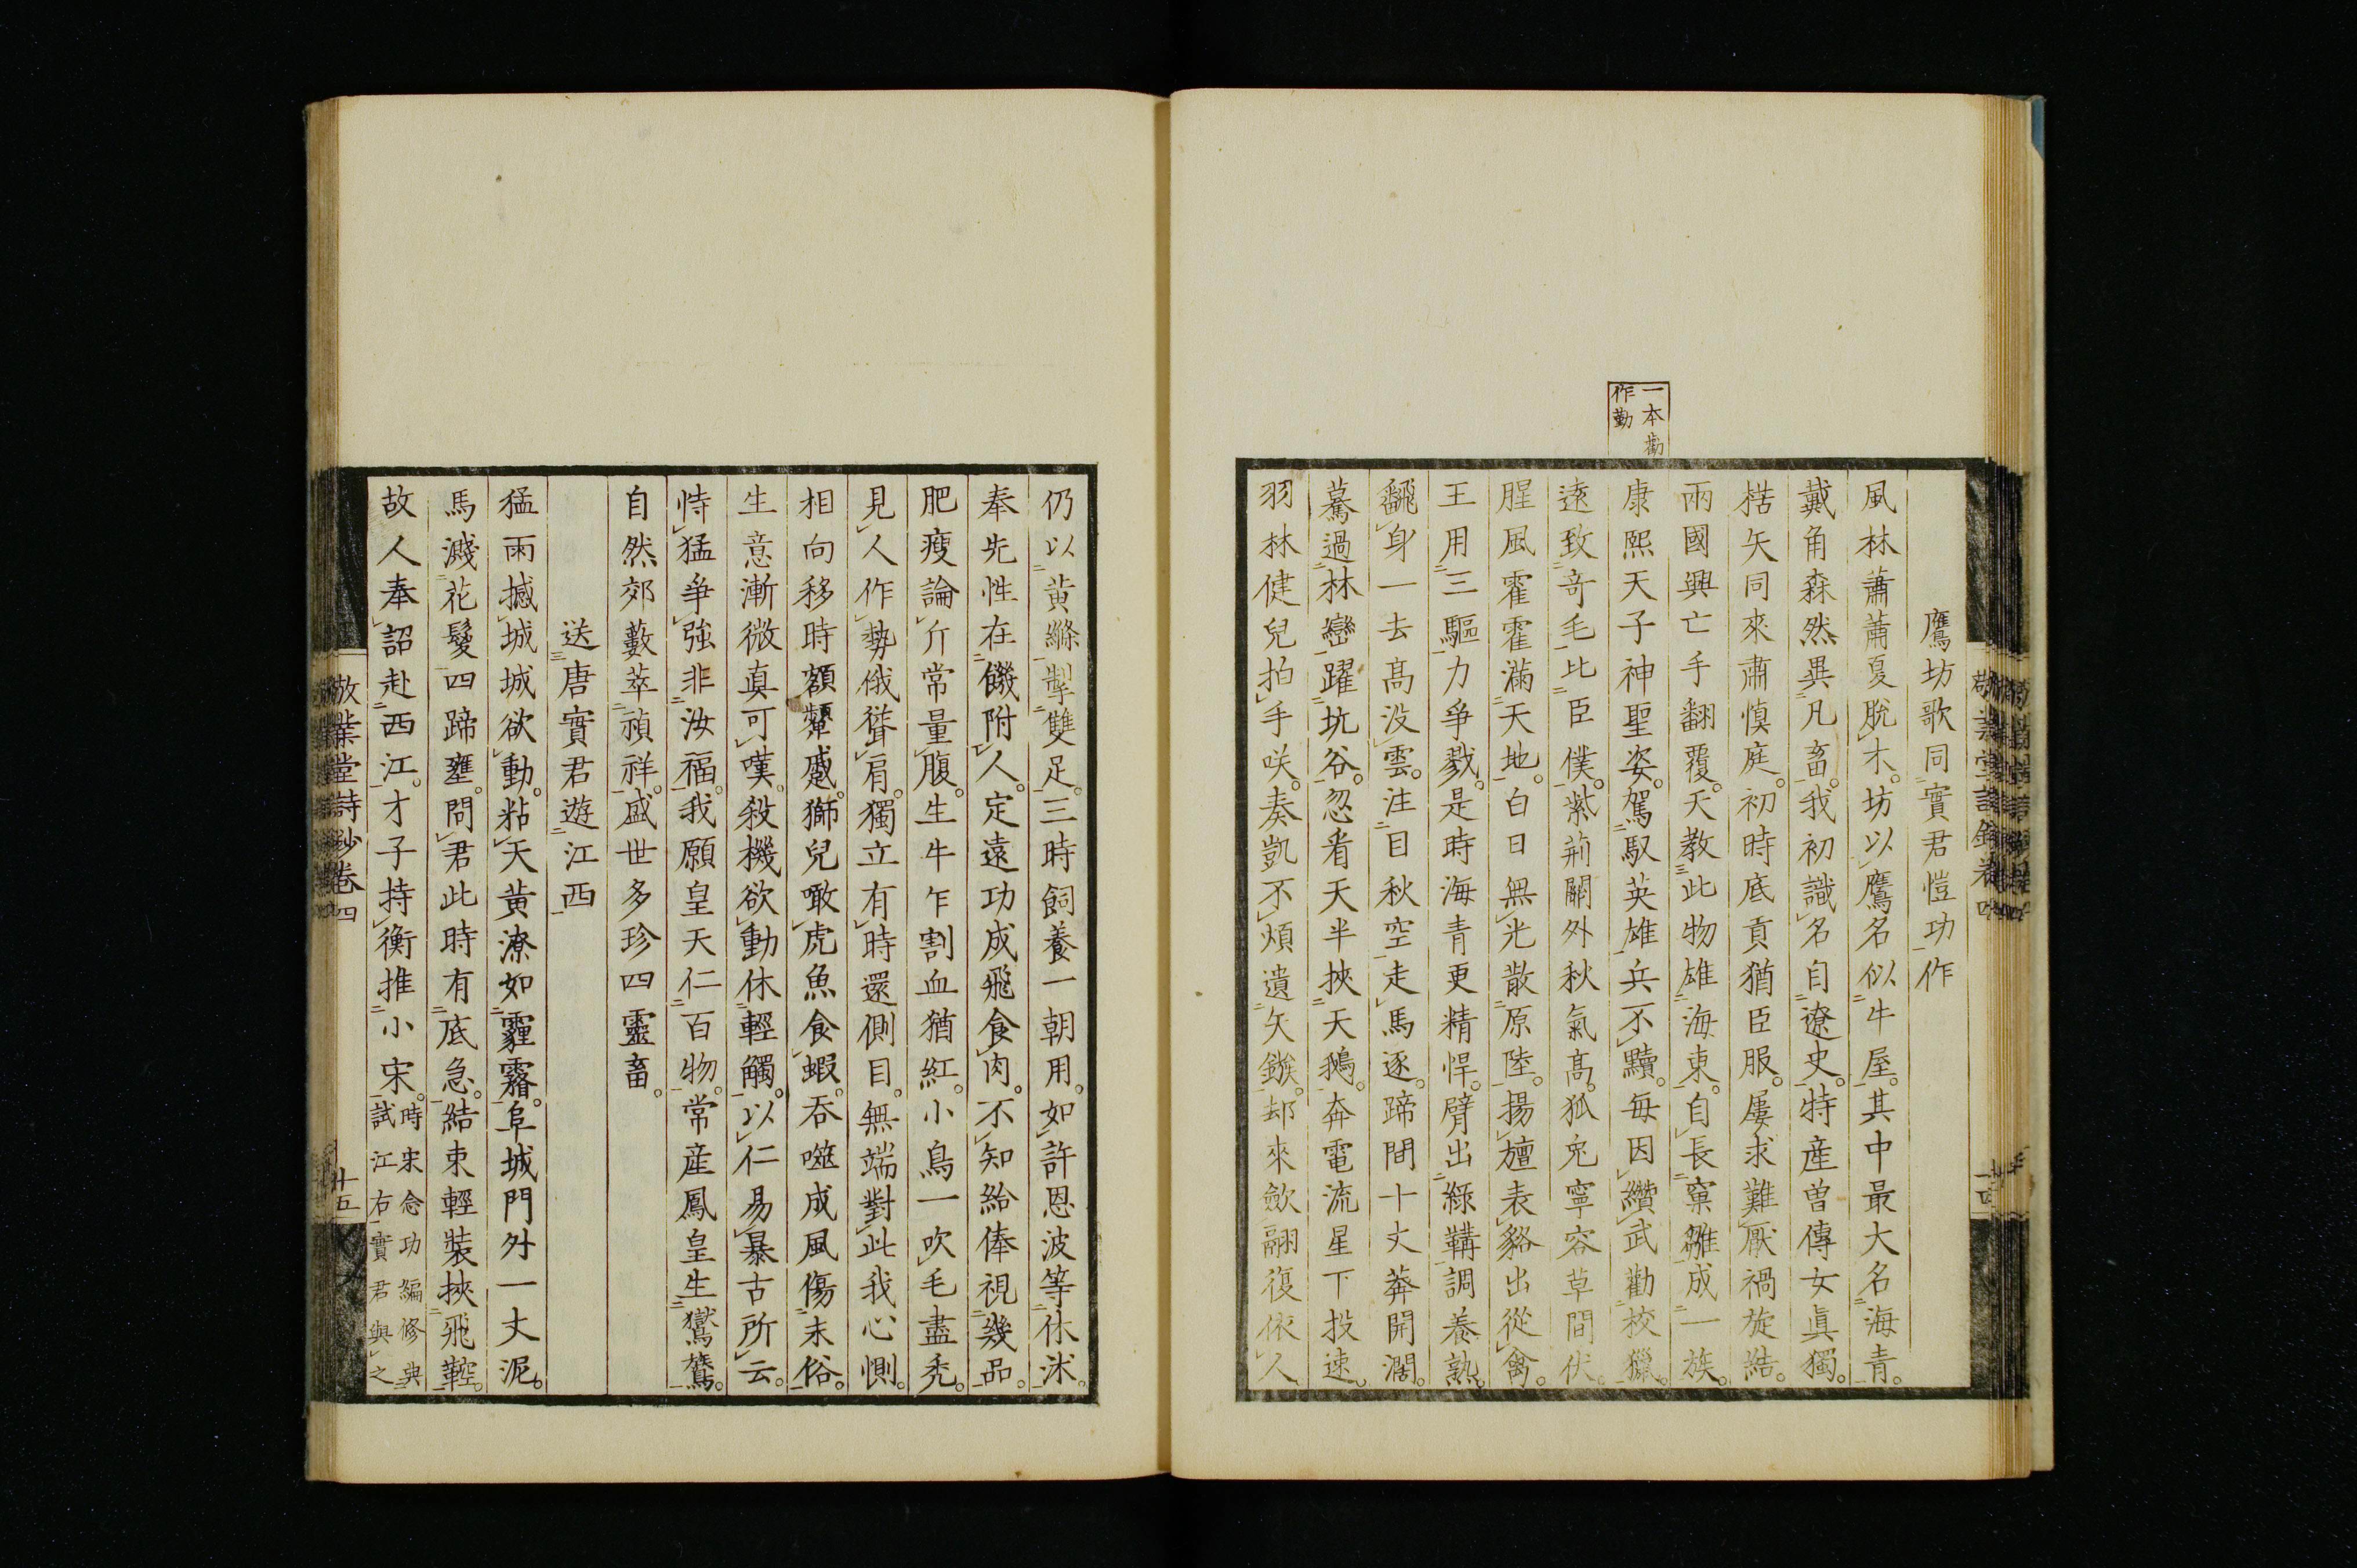 一本勸
作勤
鷹坊歌同實君愷功作
風林蕭蕭夏脫木。坊以鷹名似牛屋。其中最大名海青。
戴角森然異凡畜。我初識名自遼史。特産曽傳女眞獨。
楛矢同來肅慎庭。初時底貢猶臣服。屢求難厭禍旋結。
兩國興亡手翻覆。天教此物雄海東。自長窠雛成一族。
康熙天子神聖姿。駕馭英雄兵不黷。毎因纘武勸校獵。
遠致竒毛比臣僕。紫荊關外秋氣髙。狐兎寧容草間伏。
腥風霍霍滿天地。白日無光散原陸。揚旜表貉出從禽。
王用三驅力爭戮。是時海青更精悍。臂出綠鞲調養熟。
飜身一去髙没雲。注目秋空走馬逐。蹄間十丈莾開濶。
驀過林巒躍坑谷。忽看天半挾天鵝。奔電流星下投速。
羽林健兒拍手咲。奏凱不煩遺矢鏃。却來歛翮復依人。
仍以黄絛掣雙足。三時飼養一朝用。如許恩波等休沐。
奉先性在饑附人。定遠功成飛食肉。不知給俸視幾品。
肥瘦論斤常量腹。生牛乍割血猶紅。小鳥一吹毛盡秃。
見人作勢俄聳肩。獨立有時還側目。無端對此我心惻。
相向移時額顰蹙。獅兒噉虎魚食蝦。吞噬成風傷末俗。
生意漸微真可嘆。殺機欲動休輕觸。以仁易暴古所云。
恃猛爭強非汝福。我願皇天仁百物。常産鳳皇生鸑鷟。
自然郊藪萃禎祥。盛世多珍四靈畜。
送唐實君遊江西
猛雨撼城城欲動。粘天黄潦如霾霿。阜城門外一丈泥。
馬濺花鬉四蹄壅。問君此時有底急。結束輕裝挾飛鞚。
故人奉詔赴西江。才子持衡推小宋。時宋念功編修典
試江右實君與之
敬業堂詩鈔卷四
十五